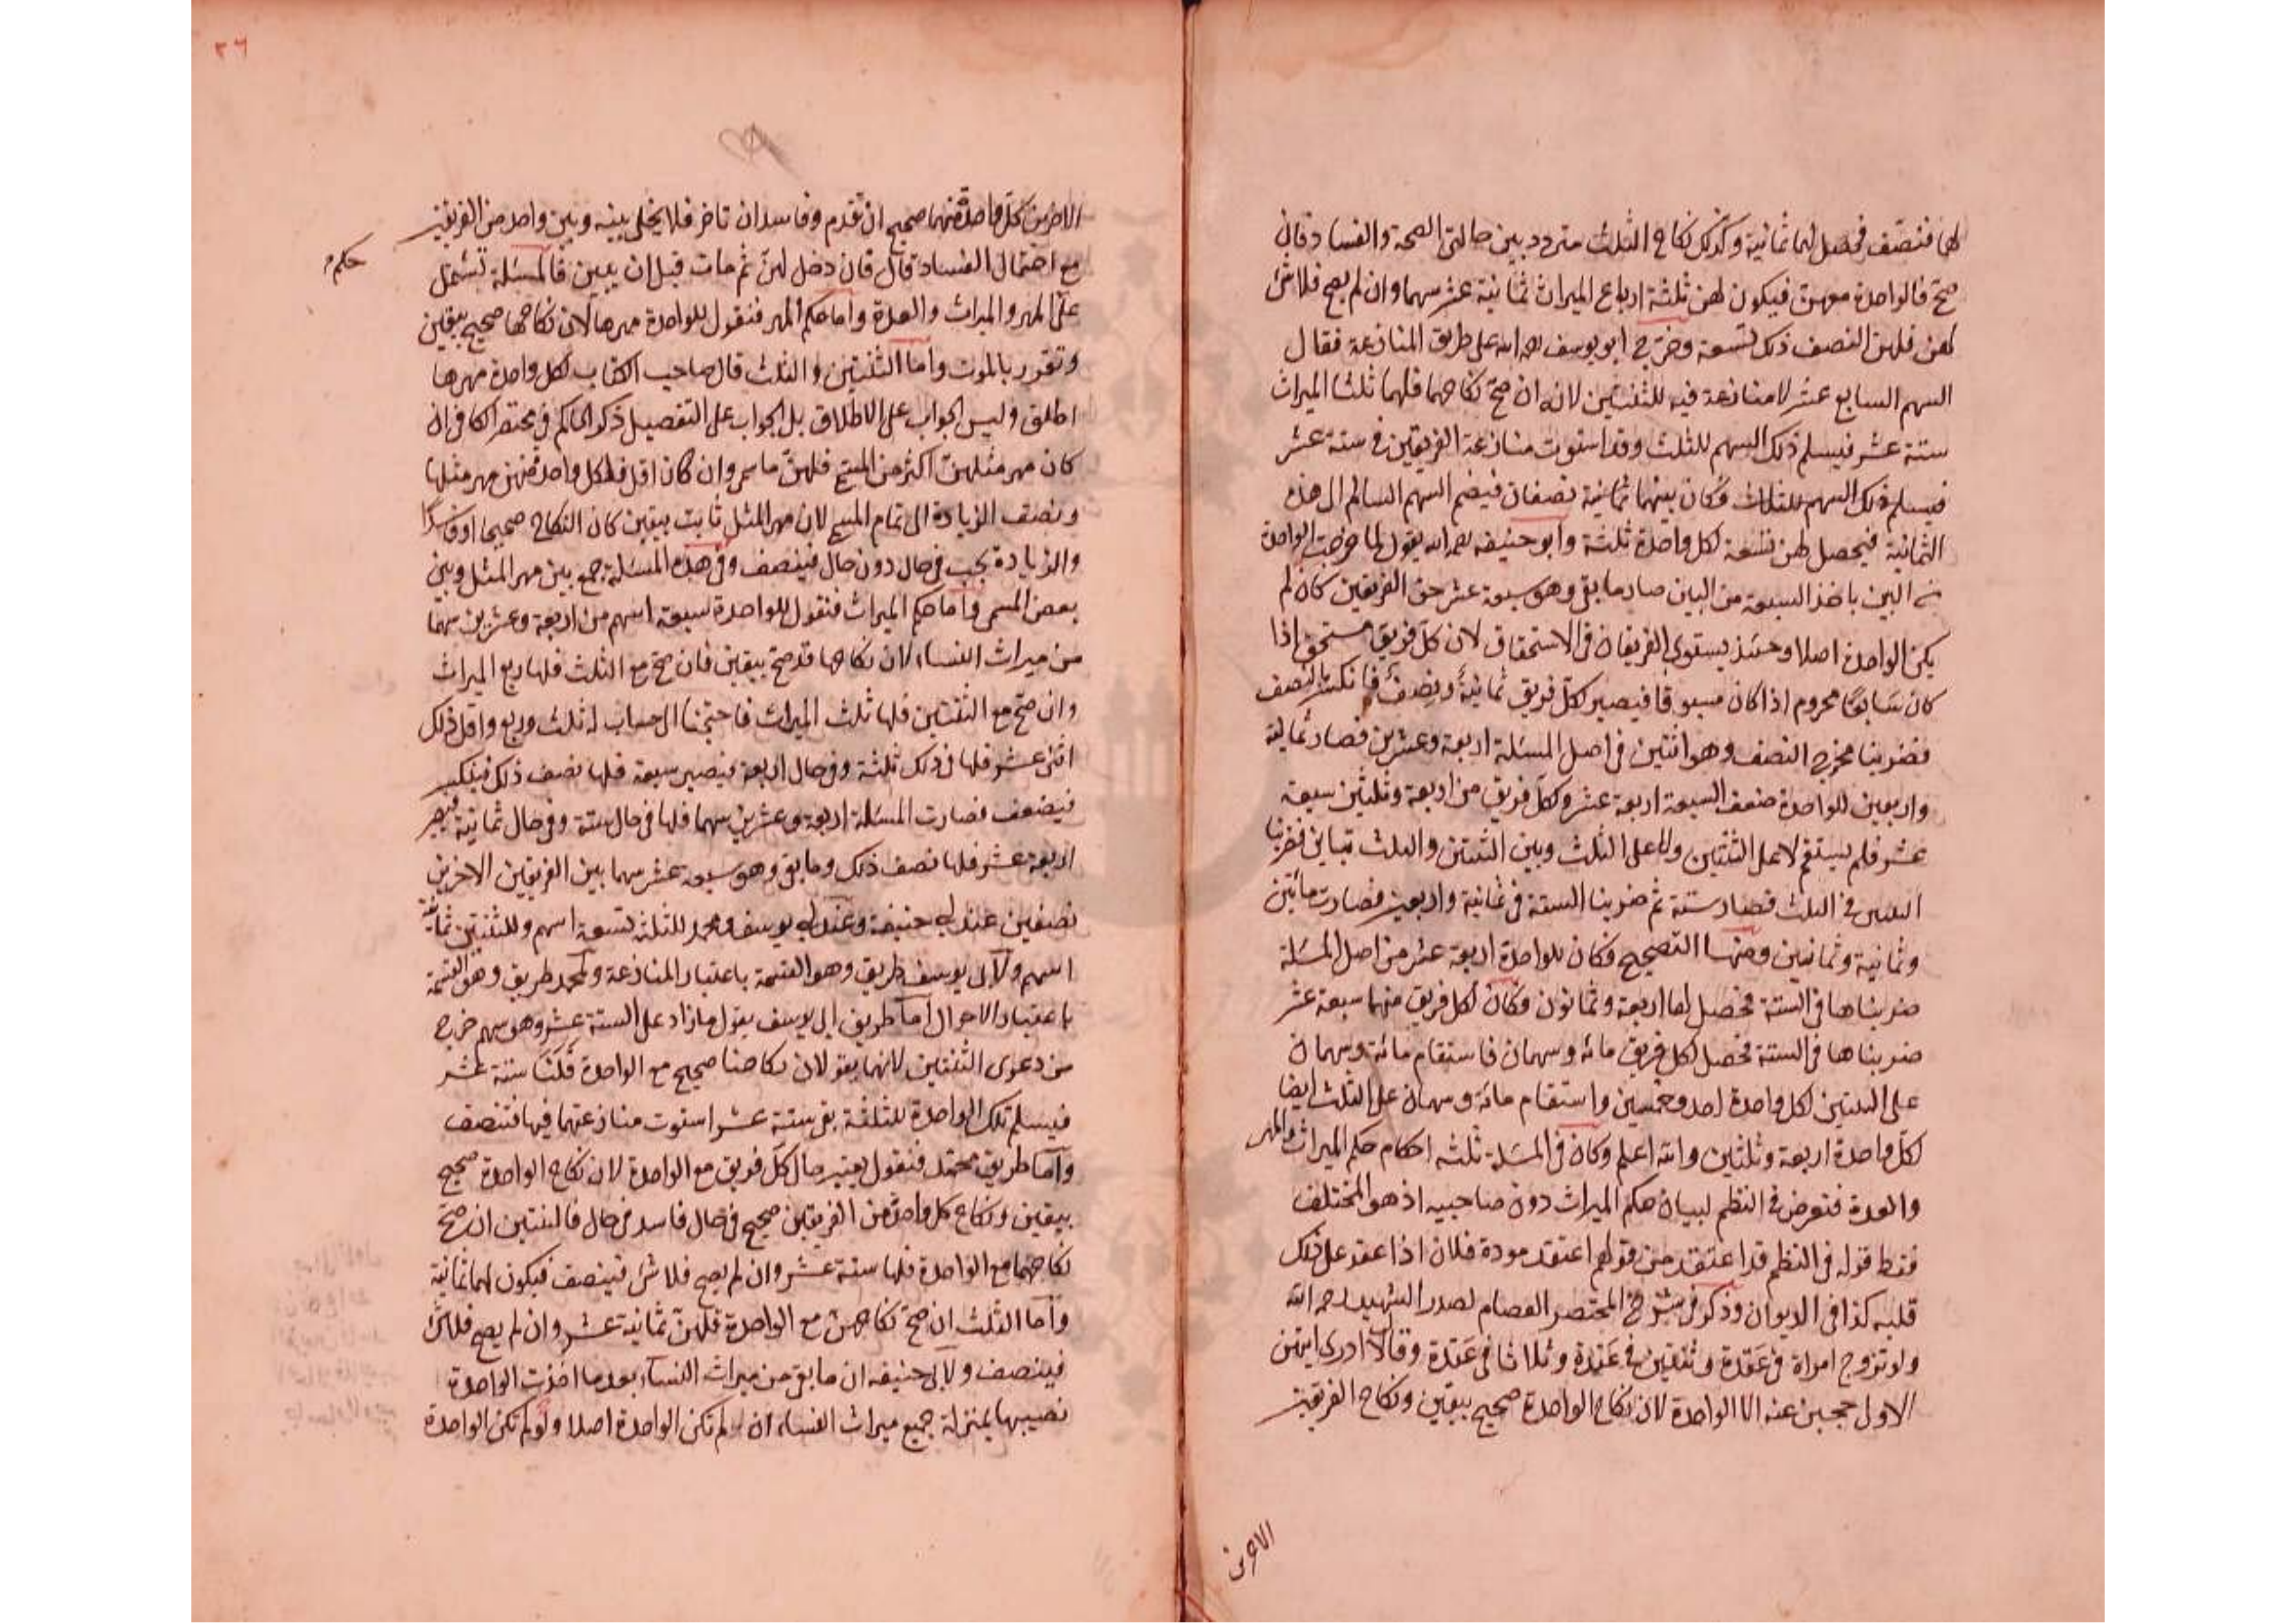 لهما فتنصف فحصل لهما ثمانية وكذلك نكاح الثلث متردد بين حالتي الصحة والفساد فان
صح فالواحدة معهن فيكون لهن ثلثة ارباع الميراث ثمانية عشر سهما وان لم يصح فلا شئ
لهن فلهن النصف ذلك تسعة وخرج ابو يوسف رحمه الله على طريق المنازعة فقال
السهم السابع عشر لا منازعة فيه للثنتين لانه ان صح نكاحهما فلهما ثلثا الميراث
ستة عشر فيسلم ذلك السهم للثلث وقد استوت منازعة الفريقين في ستة عشر
فيسلم ذلك السهم للثلاث فكان بينهما ثمانية نصفان فيضم السهم السالم الى هذه
الثمانية فيحصل لهن تسعة لكل واحدة ثلثة وابو حنيفه رحمه الله يقول لما خرجت الواحدة
من البين باخذ السبعة من البيان صار ما بقي وهو سبعة عشر حق الفريقين كان لم
يكن الواحدة اصلا وحينئذ يستوى الفريقان في الاستحقاق لان كل فريق مستحق اذا
كان سابقا محروم اذا كان مسبوقا فيصير لكل فريق ثمانية ونصف فانكسر النصف
فضربنا مخرج النصف وهو اثنين في اصل المسئلة اربعة وعشرين فصار ثمانية
واربعين للواحدة ضعف السبعة اربعة عشر ولكل فريق من اربعة وثلثين سبعة
عشر فلم يستقم لا على الثنتين ولا على الثلث وبين الثنتين والثلث تباين فضربنا
الثنتين في الثلث فصار ستة ثم ضربنا الستة في ثمانية واربعين فصارت مأتين
وثمانية وثمانين ومنها التصحيح فكان للواحدة اربعة عشر من اصل المسئلة
ضربناها في الستة فحصل لها اربعة وثمانون وكان لكل فريق منهما سبعة عشر
ضربناها في الستة فحصل لكل فريق مائه وسهمان فاستقام مائة وسهمان
على الثنتين لكل واحدة احد وخمسين واستقام مائة وسهمان على الثلث ايضا
لكل واحدة اربعة وثلثين والله اعلم وكان في المسئلة ثلثه احكام حكم الميراث والمهر
والعدة فتعرض في النظم لبيان حكم الميراث دون صاحبيه اذ هو المختلف
فقط قوله في النظم قد اعتقد من قولهم اعتقد مودة فلان اذا عقد على ذلك
قلبه كذا في الديوان وذكر في شرح المختصر العصام لصدر الشهيد رحمه الله
ولو تزوج امراة في عقدة وثنتين في عقدة وثلاثا في عقدة وقال لا ادرى ايتهن
الاول حجبن عنه الا الواحدة لان نكاح الواحدة صحيح بيقين ونكاح الفريقين
الاخرين
٢٦
الاخرين كل واحدة منهما صحيح ان تقدم وفاسد ان تاخر فلا يخلى بينه وبين واحد من الفريقين
مع احتمال الفساد قال فان دخل لهن ثم مات قبل ان يبين فالمسئلة تشتمل
حكم
على المهر والميراث والعدة واما حكم المهر فنقول للواحدة مهرها لان نكاحها صحيح بيقين
وتقرر بالموت واما الثنتين والثلث قال صاحب الكتاب لكل واحدة مهرها
اطلق وليس الجواب على الاطلاق بل الجواب على التفصيل ذكر الحاكم في مختصر الكافي ان
كان مهر مثلهن اكثر من المسمى فلهن ما سمى وان كان اقل فلكل واحدة منهن مهر مثلها
ونصف الزيادة الى تمام المسمى لان مهر المثل ثابت بيقين كان النكاح صحيحا او فاسدا
والزيادة يجب في حال دون حال فينصف وفي هذه المسئلة جمع بين مهر المثل وبين
بعض المسمى واما حكم الميراث فنقول للواحدة سبعة اسهم من اربعة وعشرين سهما
من ميراث النساء لان نكاحها قد صح بيقين فان صح مع الثلث فلها ربع الميراث
وان صح مع الثنتين فلها ثلث الميراث فاحتجنا الى حساب له ثلث وربع واقل ذلك
اثنى عشر فلها في ذلك ثلثة وفي حال اربعة فيصير سبعة فلها نصف ذلك فينكسر
فيضعف فصارت المسئلة اربعة وعشرين سهما فلها في حال ستة وفي حال ثمانية فيصير
اربعة عشر فلها نصف ذلك وما بقي وهو سبعة عشر سهما بين الفريقين الاخرين
نصفين عند ابي حنيفة وعند ابي يوسف ومحمد للثلث تسعة اسهم وللثنتين ثمانية
اسهم ولابي يوسف طريق وهو القسمة باعتبار المنازعة ولمحمد طريق وهو القسمة
باعتبار الاحوال اما طريق ابي يوسف يقول ما زاد على الستة عشر وهو سهم خرج
من دعوى الثنتين لانهما يقولان نكاحنا صحيح مع الواحدة فلنا ستة عشر
فيسلم تلك الواحدة للثلثة بقي ستة عشر استوت منازعتهما فيها فتنصف
واما طريق محمد فنقول يعتبر حال كل فريق مع الواحدة لان نكاح الواحدة صحيح
بيقين ونكاح كل واحد من الفريقين صحيح في حال فاسد في حال فالثنتين ان صح
نكاحهما مع الواحدة فلها ستة عشر وان لم يصح فلا شئ فينصف فيكون لهما ثمانية
واما الثلث ان صح نكاحهن مع الواحدة فلهن ثمانية عشر وان لم يصح فلا شئ
فينصف ولابي حنيفه ان ما بقي من ميراث النساء بعد ما اخذت الواحدة
نصيبها بمنزلة جميع ميراث النساء ان لم تكن الواحدة اصلا ولو لم تكن الواحدة